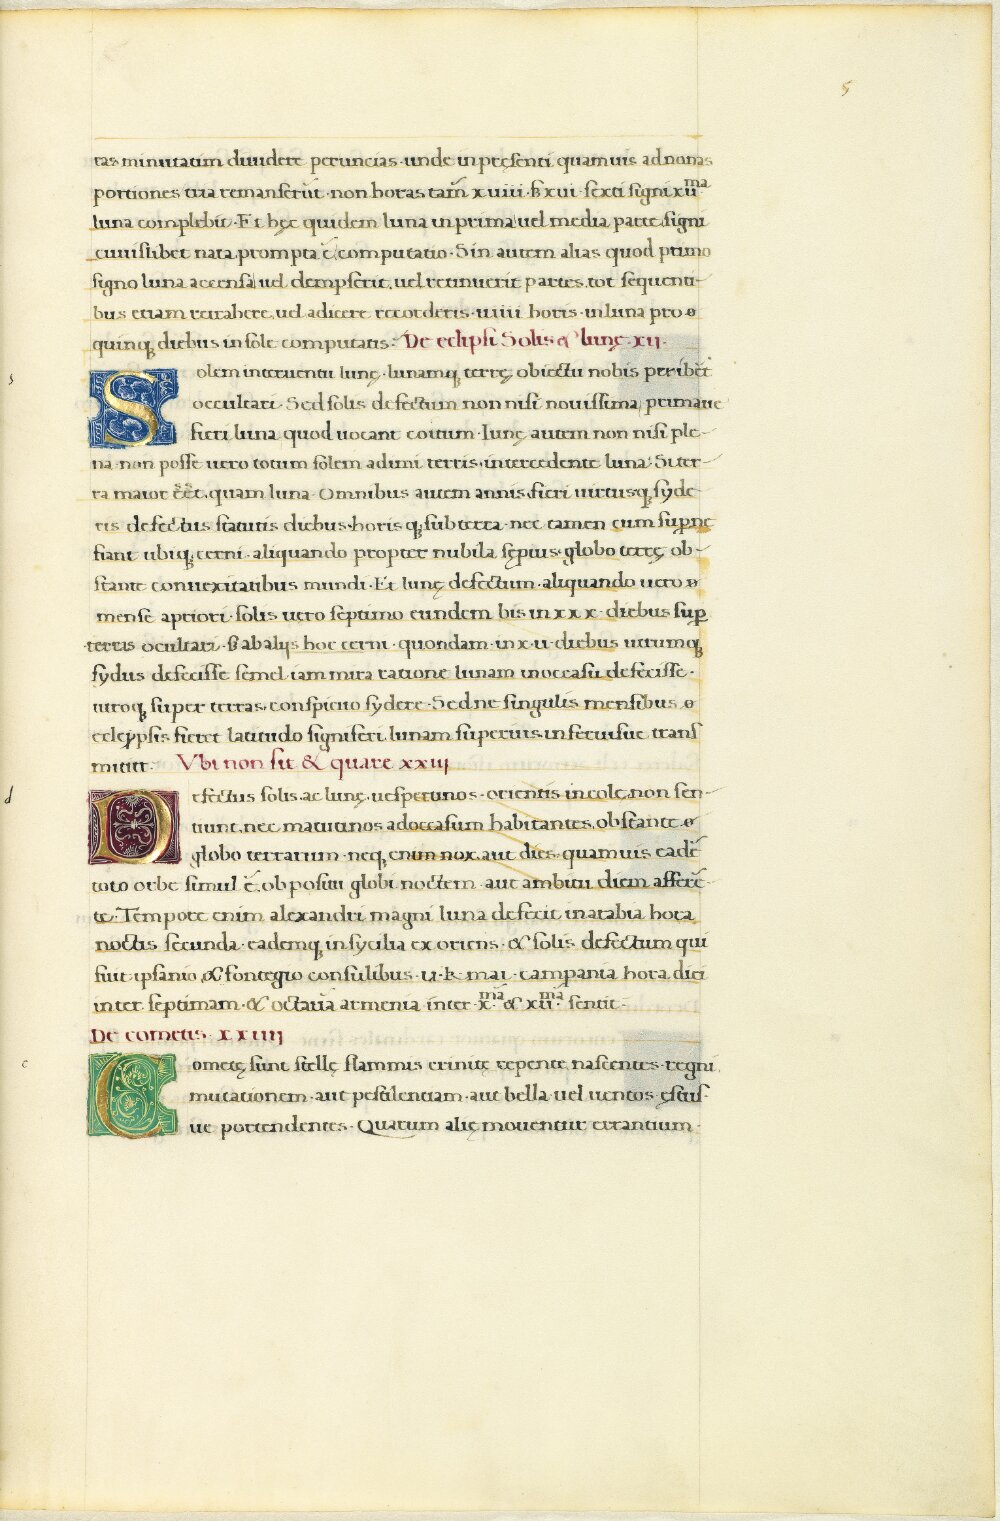 5
tas minutatim diuidere per uncias · unde in pręsenti quamuis ad nonas
portiones tria remanserūt · non horas tam̄ xuiiii · s; xui · sexti signi xii^ma
luna complebit · Et hęc quidem luna in prima uel media parte signi
cuiuslibet nata prompta ē computatio · Sin autem alias quod primo
signo luna accensa uel dempserit, uel retinuerit partes, tot sequenti-
bus etiam retrahere, uel adicere recorderis · uiiii horis · in luna pro
quinq; diebus in sole computatis · De eclipsi Solis & lunę · xii ·
s
Solem interuentu lunę · lunamq; terrę obiectu nobis peribēt
occultari · Sed solis defectum non nisi nouissima primaue
fieri luna quod uocant coitum · lunę autem non nisi ple-
na · non posse uero totum solem adimi terris · intercedente luna · Si ter-
ra maior eēt, quam luna · Omnibus autem annis fieri utriusq; syde
ris defectus statutis diebus · horisq; sub terra · nec tamen cum supnę
fiant ubiq; cerni · aliquando propter nubila sępius · globo terrę ob-
stante conuexitatibus mundi · Et lunę defectum · aliquando uero
mense a priori · solis uero septimo eundem bis in xxx · diebus sup
terris ocultari · s; ab alijs hoc cerni · quondam · in x · u · diebus utrumq;
sydus defecisse semel · iam mira ratione lunam in occasu defecisse ·
utroq; super terras, conspicuo sydere · Sed ne singulis mensibus
eclypsis fieret latitudo signiferi lunam superius inferiusue trans
mittit · Vbi non sit & quare xxiij
d
Defectus solis, ac lunę, uespertinos · orientis incolę, non sen-
tiunt, nec matutinos ad occasum habitantes, obstante
globo terrarum · neq; enim nox, aut dies · quamuis eadē
toto orbe simul ē, ob positu globi noctem · aut ambitu diem afferē-
te · Tempore enim alexandri magni luna defecit in arabia hora
noctis secunda · eademq; in sycilia exoriens · & solis defectum qui
fuit ipsanio, & fontegio consulibus · u · k · mai · campania hora diei
inter septimam · & octauā armenia inter x^ma · & xii^ma · sentit ·
De cometis · xxiiii
c
Cometę sunt stellę flammis crinitę repente nascentes · regni
mutationem · aut pestilentiam · aut bella uel uentos · ęstus-
ue portendentes · Quarum alię mouentur errantium ·